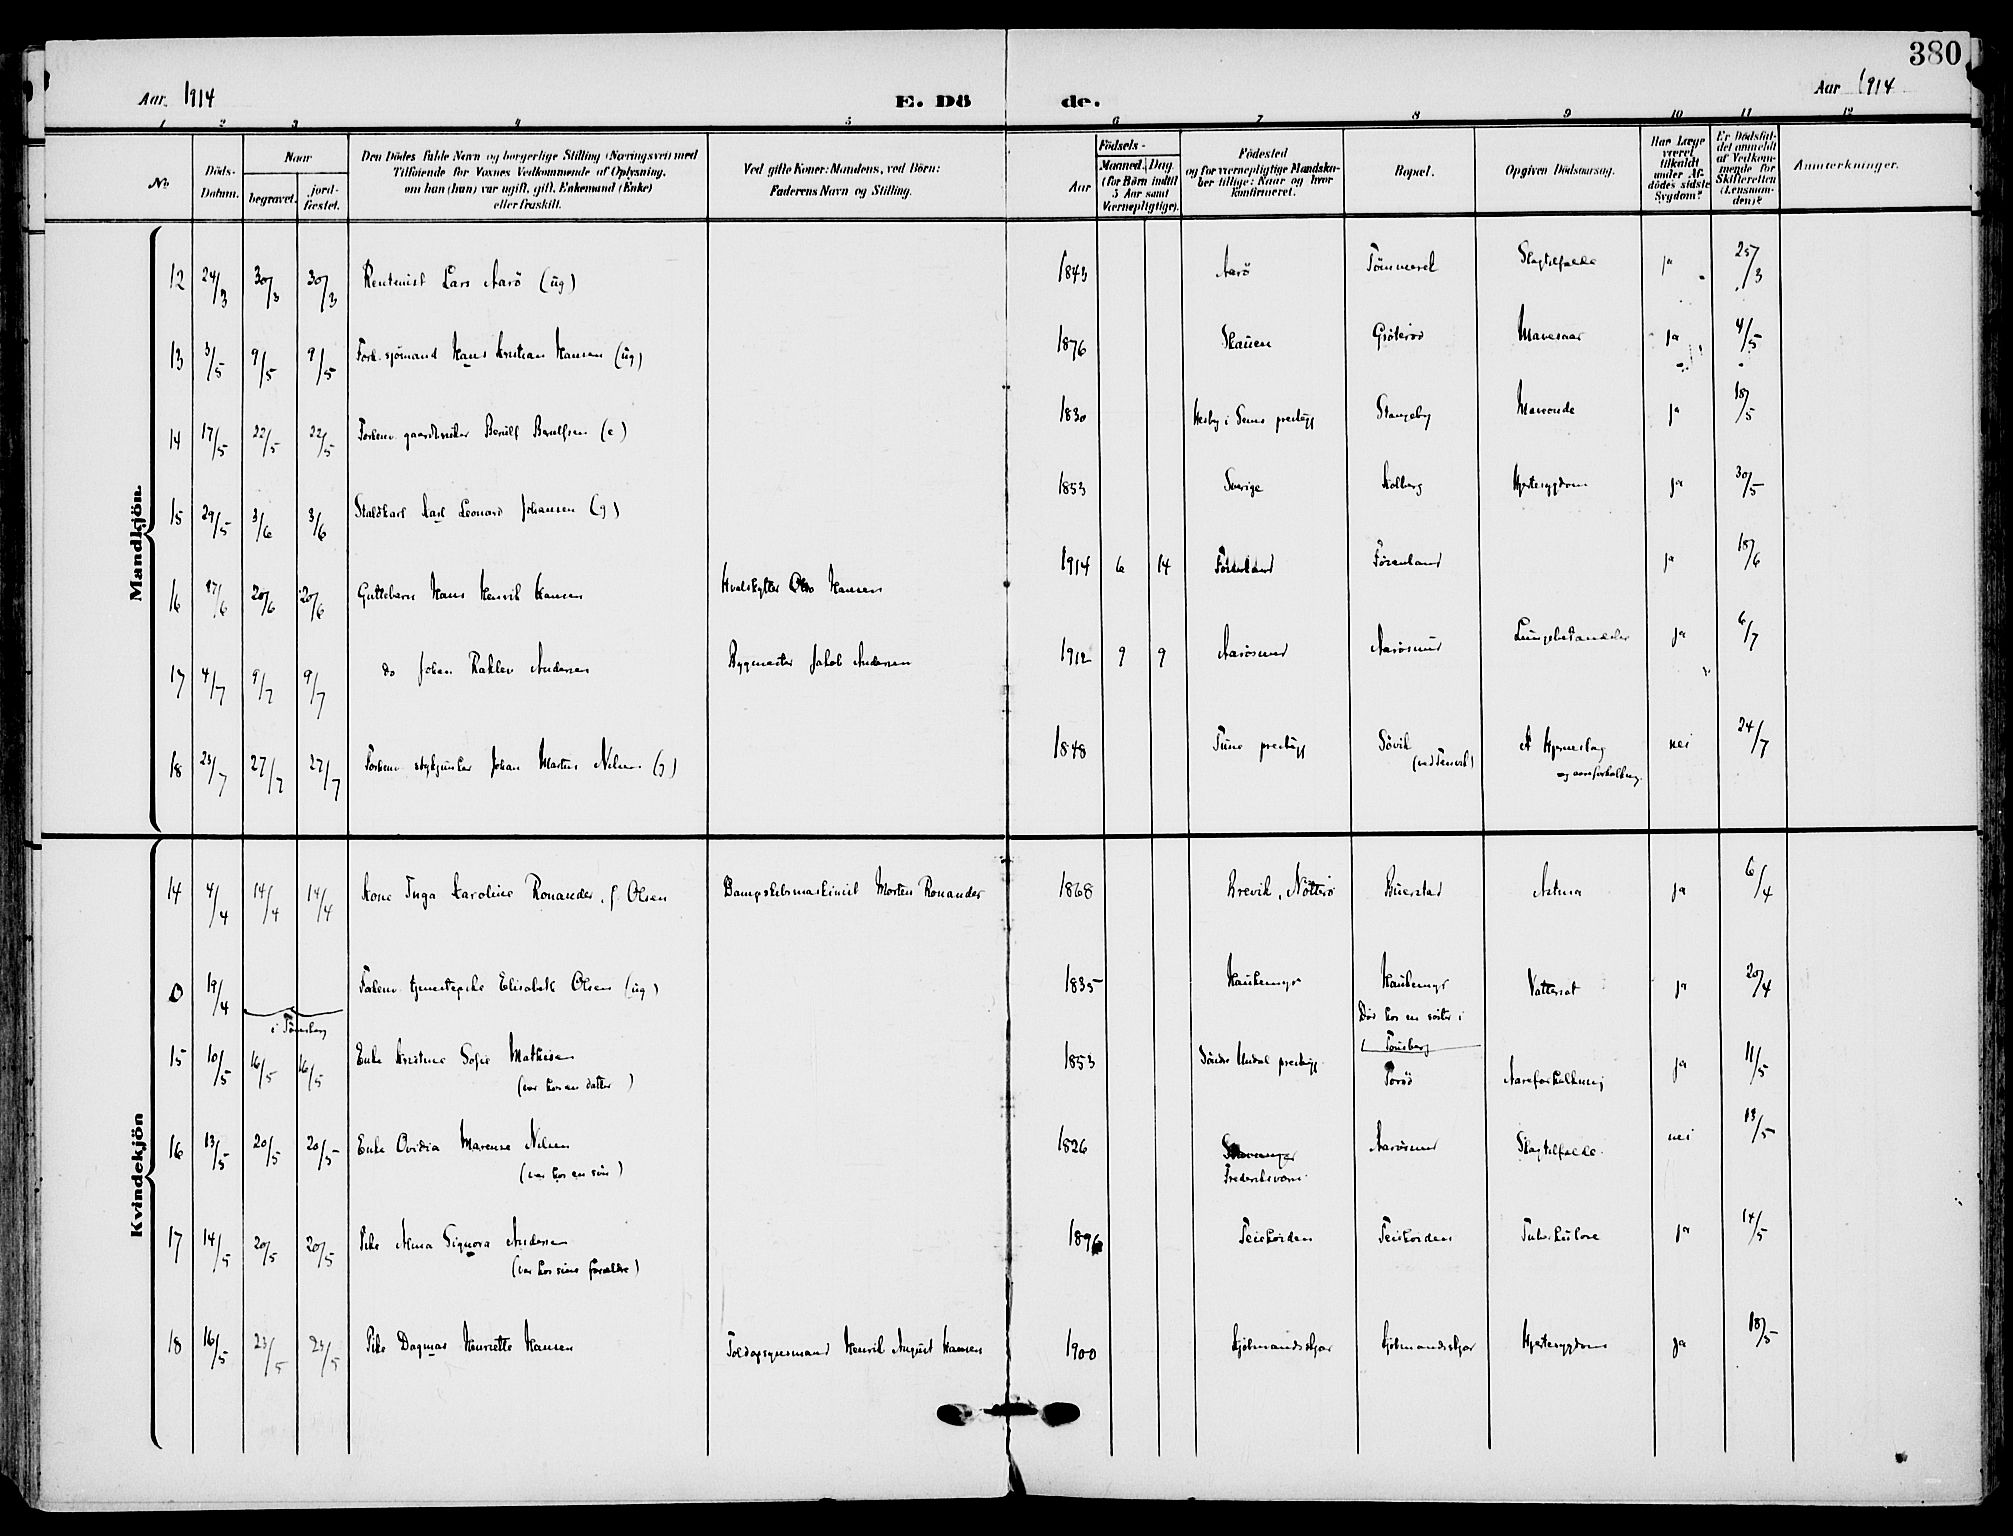 380
Aar 1914 E. Dö de. Aar 1914
1 2 3 4 5 6 7 8 9 10 11 12
No
Döds-Datum.
Naar
begravet.
jord-fæstet.
Den Dödes fulde Navn og borgerlige Stilling (Næringsvei) med
Tilföiende for Voxnes Vedkommende af Oplysning,
om han (hun) var ugift, gift, Enkemand (Enke)
eller fraskilt.
Ved gifte Koner: Mandens, ved Börn:
Faderens Navn og Stilling.
Aar
Födsels-
Maaned. Dag.
(for Börn indtil
5 Aar samt
Værnepligtige).
Födested
og for værnepligtige Mandska-
ber tillige: Naar og hvor
konfirmeret.
Bopæl.
Opgiven Dödsaarsag.
Har Læge
været
tilkaldt
under Af-
dödes sidste
Sygdom?
Er Dödsfal-
det anmeldt
af Vedkom-
mende for
Skifteretten
(Lensman-
den)?
Anmærkninger.
Mandkjön.
12 24/3 30/3 30/3 Rentenist Lars Aarö (ug) 1843 Aarö Tömmerel Slagtilfælde ja 25/3
13 3/5 9/5 9/5 Forh. sjömand Hans Kristian Hansen (ug) 1876 Skauen Grötenæs ja 4/5
14 17/5 22/5 22/5 Forhenv. gaardbruker Berulf Berulfsen (e) 1830 Hesby i Sems prestegj Stangeby Marende ja 18/5
15 29/5 3/6 3/6 Staldkarl Karl Leonard Johansen (g) 1853 Sverige Kolberg Hjertesygdom ja 30/5
16 17/6 20/6 20/6 Guttebarn Hans Henrik Hansen Hvalskytter Otto Hansen 1914 6 14 Förenland Förenland ja 18/6
17 4/7 9/7 9/7 do Johan Rakler Andersen Bygmester Jakob Andersen 1912 9 9 Aarösund Aarösund Lungebetændelse ja 6/7
18 23/7 27/7 27/7 Forhenv. styrmand Johan Martin Nilsen (g) 1848 Tune prestegj Sövik A Hjerneslag nei 24/7
(ved Tenvik) og aareforkalkning.
Kvindekjön
14 4/4 14/4 14/4 Kone Inga Karoline Ronander, f. Olsen Dampskibsmaskinist Morten Ronander 1868 Brevik, Nötterö Buerstad Astma ja 6/4
0 19/4 Forhenv. tjenestepike Elisabeth Olsen (ug) 1835 Haukemyr Haukemyr Vattersot ja 20/4
i Tönsberg Död hos en söster i
Tönsberg
15 10/5 16/5 16/5 Enke Kristine Sofie Mathisen 1853 Söndre Undal prestegj. Torød Aareforkalkning ja 11/5
(var hos en datter)
16 13/5 20/5 20/5 Enke Ovidia Marense Nilsen 1826 Stavanger Aarösund Slagtilfælde. nei 13/5
(var hos en sön) Frederiksværn
17 14/5 20/5 20/5 Pike Alma Signora Andersen 1896 Teiehöiden Teiehöiden Tuberkulose ja 14/5
(var hos sine forældre)
18 16/5 23/5 23/5 Pike Dagmar Henriette Hansen Toldopsynsmand Henrik August Hansen 1900 Kjöbmandsskjær Kjöbmandsskjær Hjertesygdom ja 18/5